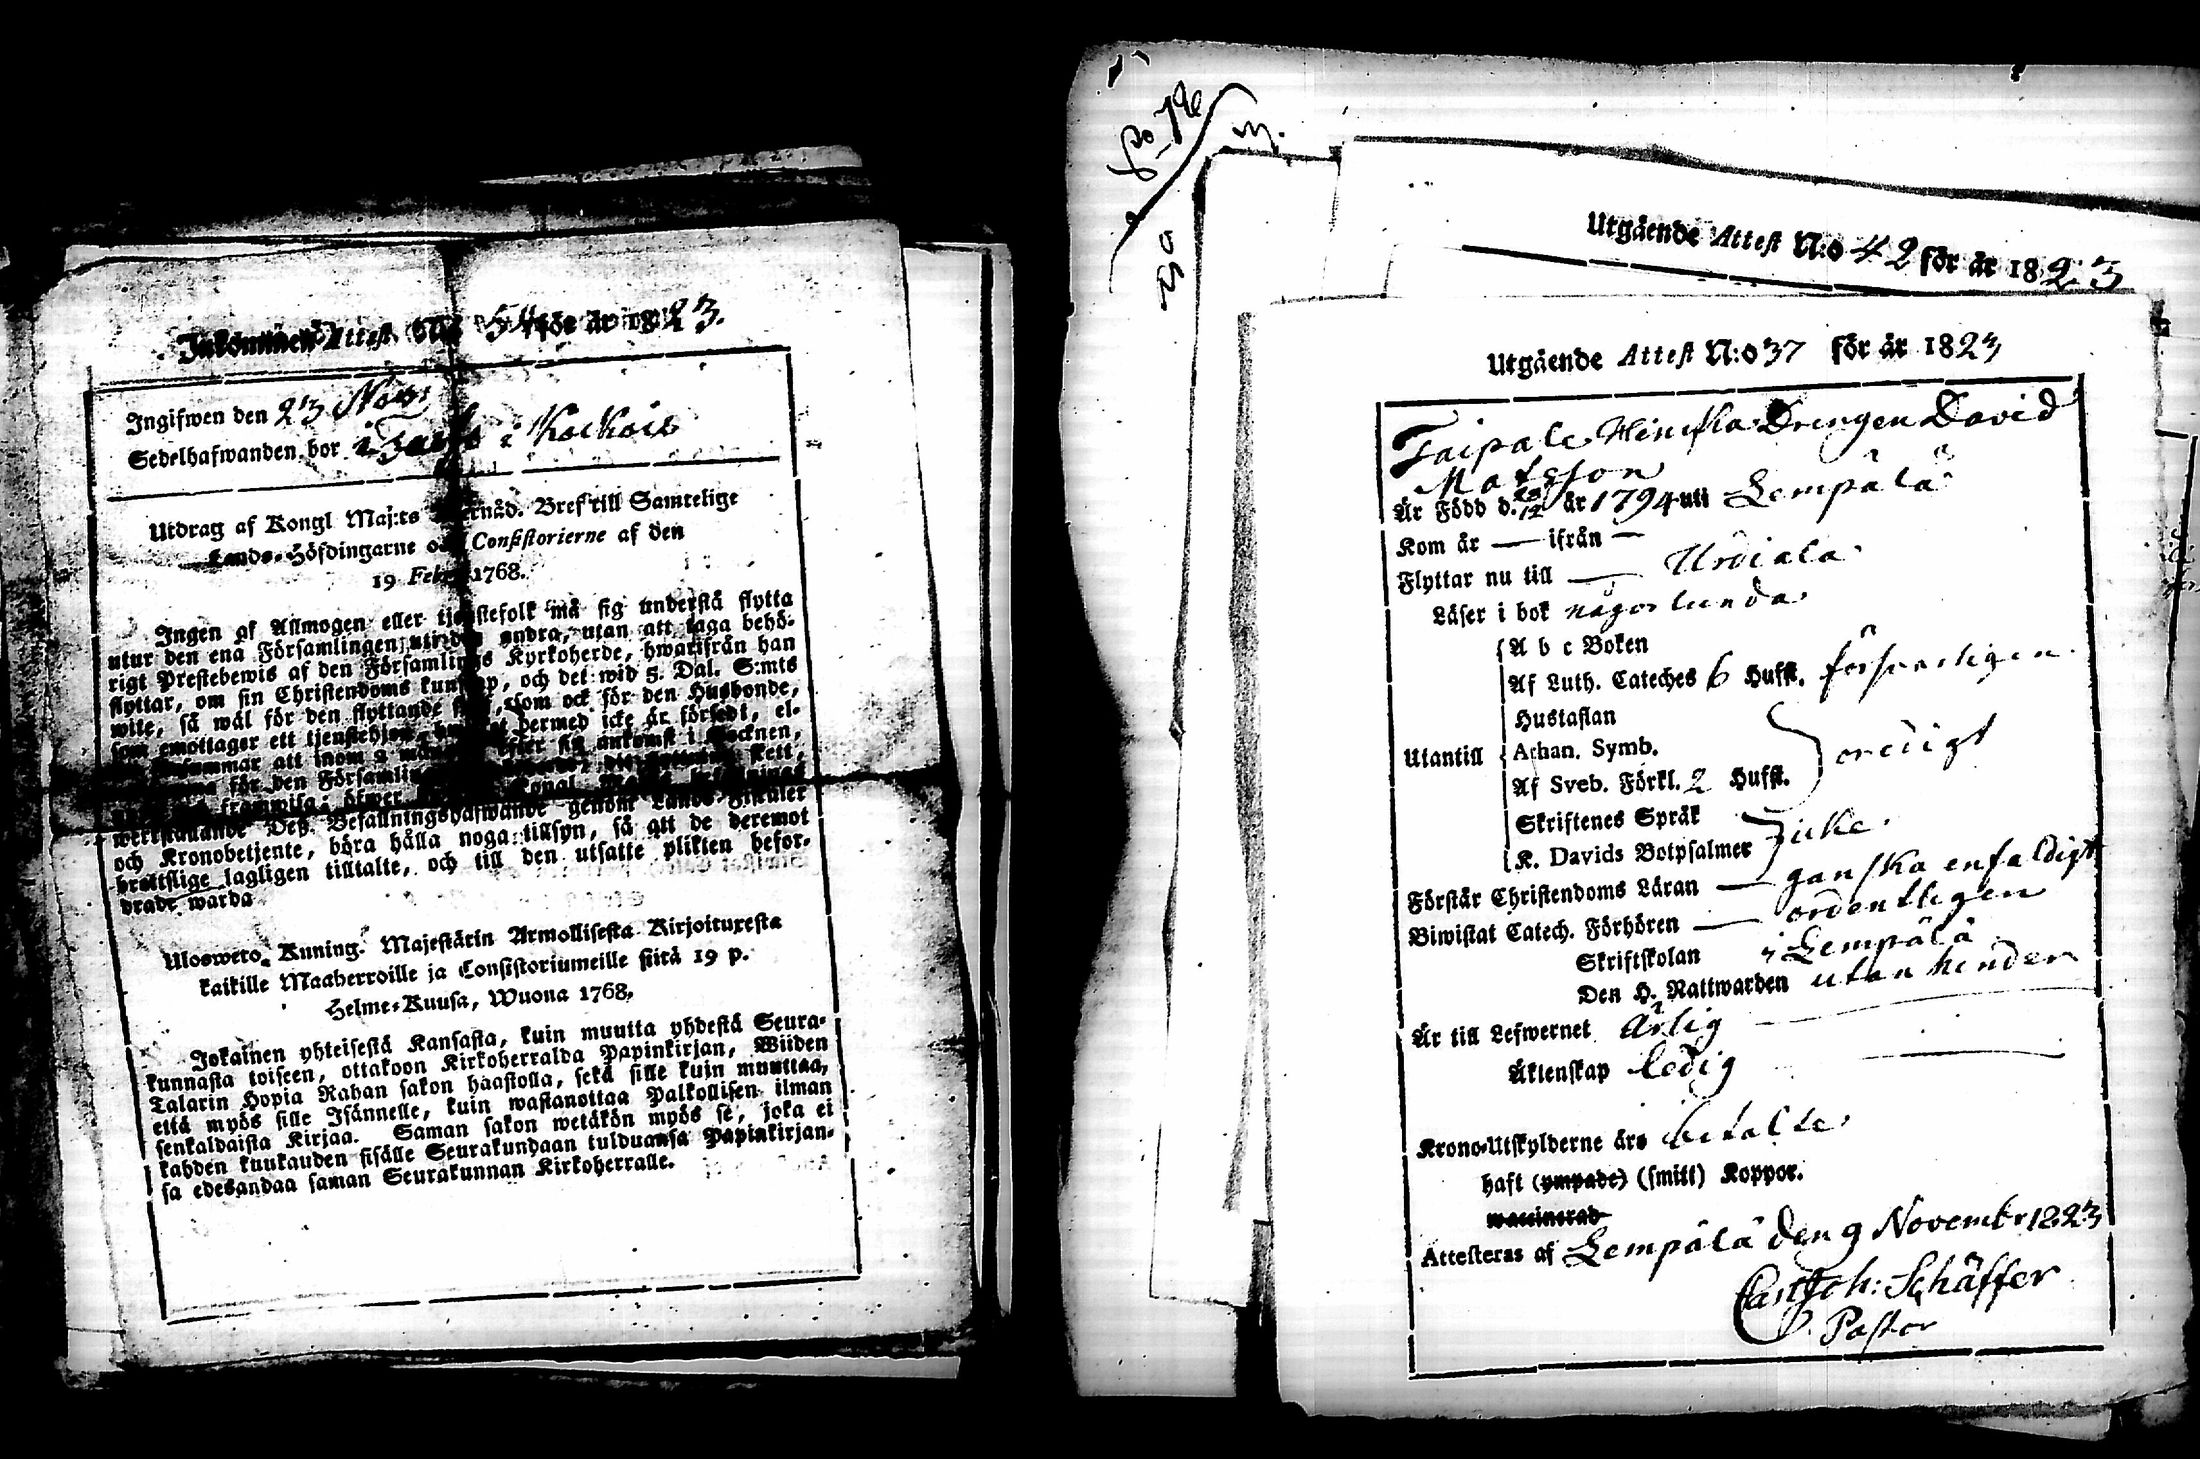 Inkommen Attest N:o 54 för år 1823.
Ingifwen den 23 Nov:
Sedelhafwanden bor i i Kockois
Utdrag af Kongl Maj:ts Bref till Samtelige
Lands-Höfdingarne och Consistorierne af den
19 Febr. 1768.
Ingen af Allmogen eller tjenstefolk må sig understå flytta
utur den ena Församlingen uti den andra, utan att taga behö-
rigt Prestebewis af den Församlings Kyrkoherde, hwarifrån han
flyttar, om sin Christendoms kunskap, och det wid 5. Dal. S:mts
wite, så wäl för den flyttande sjelf, som ock för den Husbonde,
som emottager ett tjenstehjon, dermed icke är försedt, el-
ler försummar att inom 2 efter sin ankomst i Socknen,
för den Församlin skett,
framwisa; öfwer Kongl.
werkställande Deß Befallningshafwande genom Lands-Fiskaler
och Kronobetjente, böra hålla noga tillsyn, så att de deremot
brottslige lagligen tilltalte, och till den utsatte plikten befor-
drade warda
Ulosweto Kuning. Majestätin Armollisesta Kirjoituxesta
kaikille Maaherroille ja Consistoriumeille siitä 19 p.
Helme-Kuusa, Wuona 1768.
Jokainen yhteisestä Kansasta, kuin muutta yhdestä Seura-
kunnasta toiseen, ottakoon Kirkoherralda Papinkirjan, Wiiden
Talarin Hopia Rahan sakon haastolla, sekä sille kuin muuttaa,
että myös sille Isännelle, kuin wastanottaa Palkollisen ilman
senkaldaista Kirjaa. Saman sakon wetäkön myös se, joka ei
kahden kuukauden sisälle Seurakundaan tulduansa Papinkirjan-
sa edesandaa saman Seurakunnan Kirkoherralle.
Utgående Attest N:o 42 för år 1823
Utgående Attest N:o 37 för år 1823
Taipale Drengen David
Matsson
Är Född d. 28/12 år 1794 uti Lempälä
Kom år — ifrån —
Flyttar nu till — Urdiala
Läser i bok någorlunda
A b c Boken
Af Luth. Cateches 6 Hufst. försvarligen
Hustaflan
Utantill Athan. Symb. oredigt
Af Sveb. Förkl. 2 Hufst.
Skriftenes Språk
K. Davids Botpsalmer icke
Förstår Christendoms Läran — ganska enfaldigt
Biwistat Catech. Förhören — ordentligen
Skriftskolan i Lempälä
Den H. Nattwarden utan hinder
Är till Lefwernet Ärlig —
Äktenskap ledig —
Krono-Utskylderne äro betalte
haft (ympade) (smitt) Koppor.
waccinerad
Attesteras af Lempälä den 9 Novembr 1823
Schäffer
Pastor